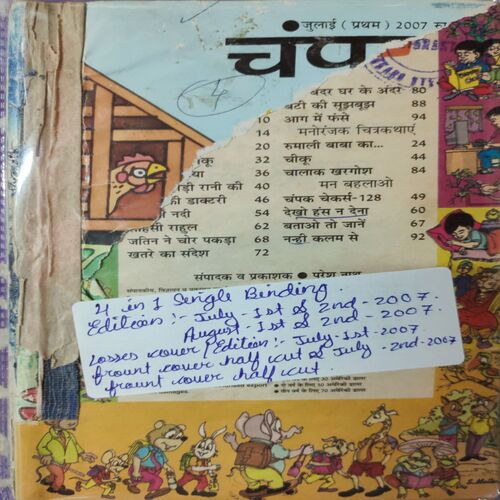 जुलाई ( प्रथम ) 2007
चंप
4
बंदर घर के अंदर 80
बंटी की सूझबूझ 88
10 आग में फंसे 94
14 मनोरंजक चित्रकथाएं
20 रुमाली बाबा का... 24
32 चीकू 44
36 चालाक खरगोश 84
ड़ी रानी की 40 मन बहलाओ
की डाक्टरी 46 चंपक चेकर्स-128 49
नदी 54 देखो हंस न देना 60
राहुल 62 बताओ तो जानें 67
जतिन ने चोर पकड़ा 68 नन्ही कलम से 92
खतरे का संदेश 72
संपादक व प्रकाशक • परेश नाथ
4 in 1 Sengle Binding.
Edition :- July - 1st & 2nd - 2007.
August - 1st & 2nd - 2007.
Losses cover / Edition :- July - 1st - 2007
frount cover half cut & July - 2nd - 2007
frount cover half cut.